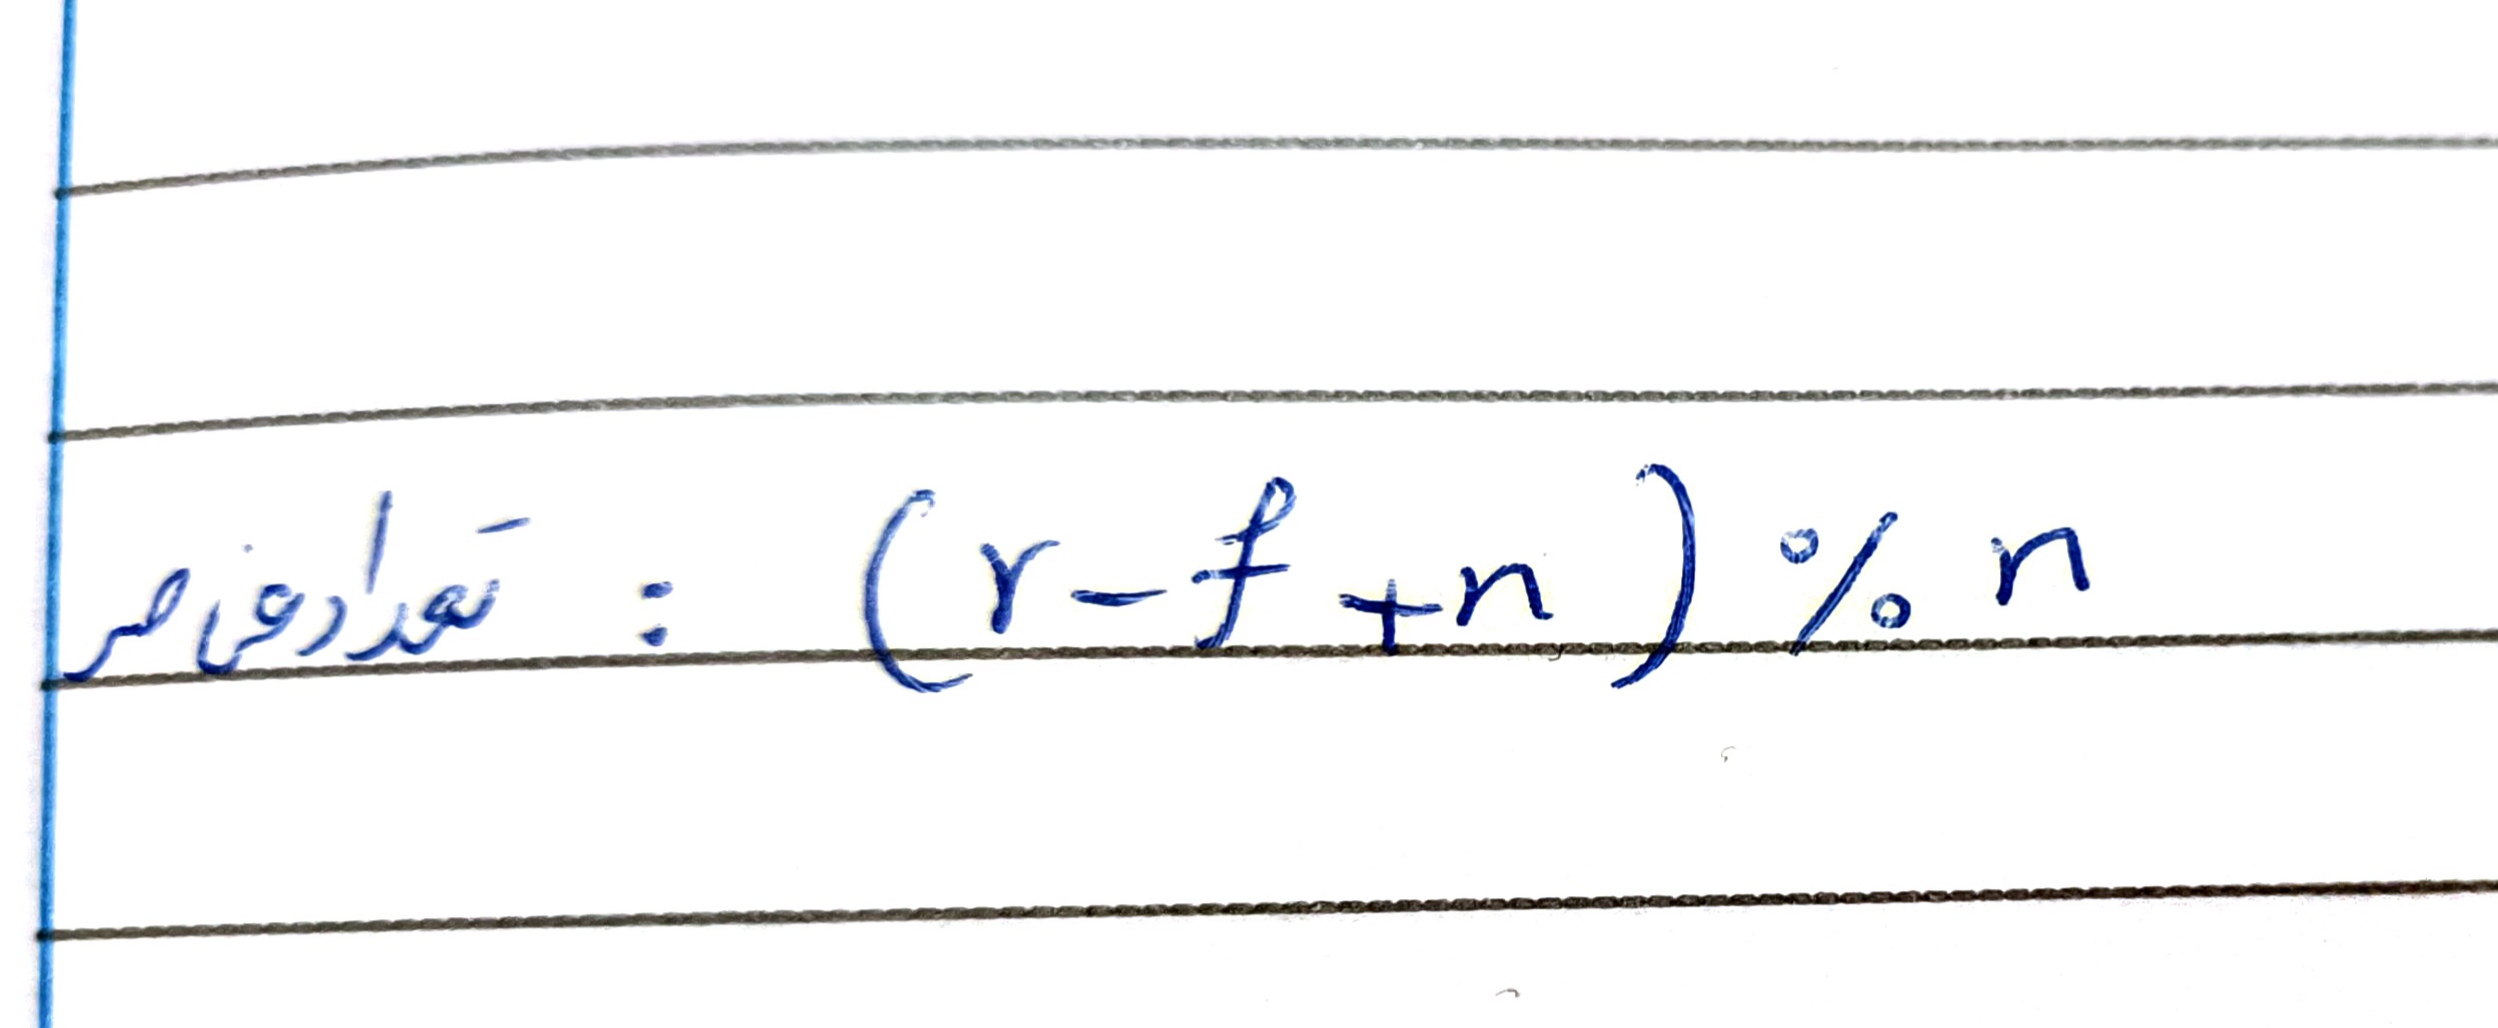 تعداد عناصر : (r - f + n) % n